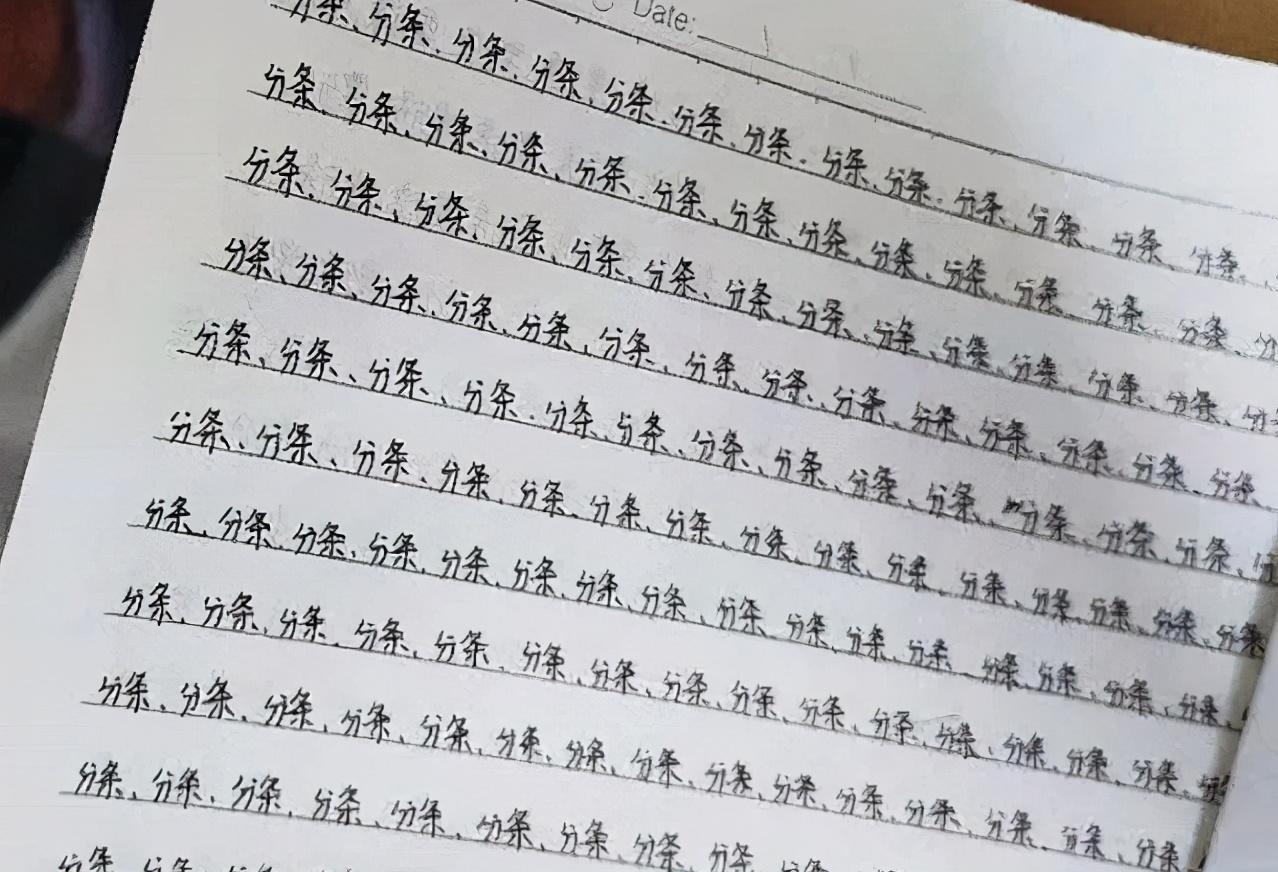 Date:
分条、分条、分条、分条、分条、分条、分条、分条、分条、分条、分条、分条、分条、
分条、分条、分条、分条、分条、分条、分条、分条、分条、分条、分条、分条、分条、分
分条、分条、分条、分条、分条、分条、分条、分条、分条、分条、分条、分条、分条、分
分条、分条、分条、分条、分条、分条、分条、分条、分条、分条、分条、分条、分条、分条
分条、分条、分条、分条、分条、分条、分条、分条、分条、分条、分条、分条、分条、分
分条、分条、分条、分条、分条、分条、分条、分条、分条、分条、分条、分条、分条、分条、分条
分条、分条、分条、分条、分条、分条、分条、分条、分条、分条、分条、分条、分条、分条、分条、分条、
分条、分条、分条、分条、分条、分条、分条、分条、分条、分条、分条、分条、分条、分条、分条、分条
分条、分条、分条、分条、分条、分条、分条、分条、分条、分条、分条、分条、分条、分条、分条
分条、分条、分条、分条、分条、分条、分条、分条、分条、分条
分条、分条